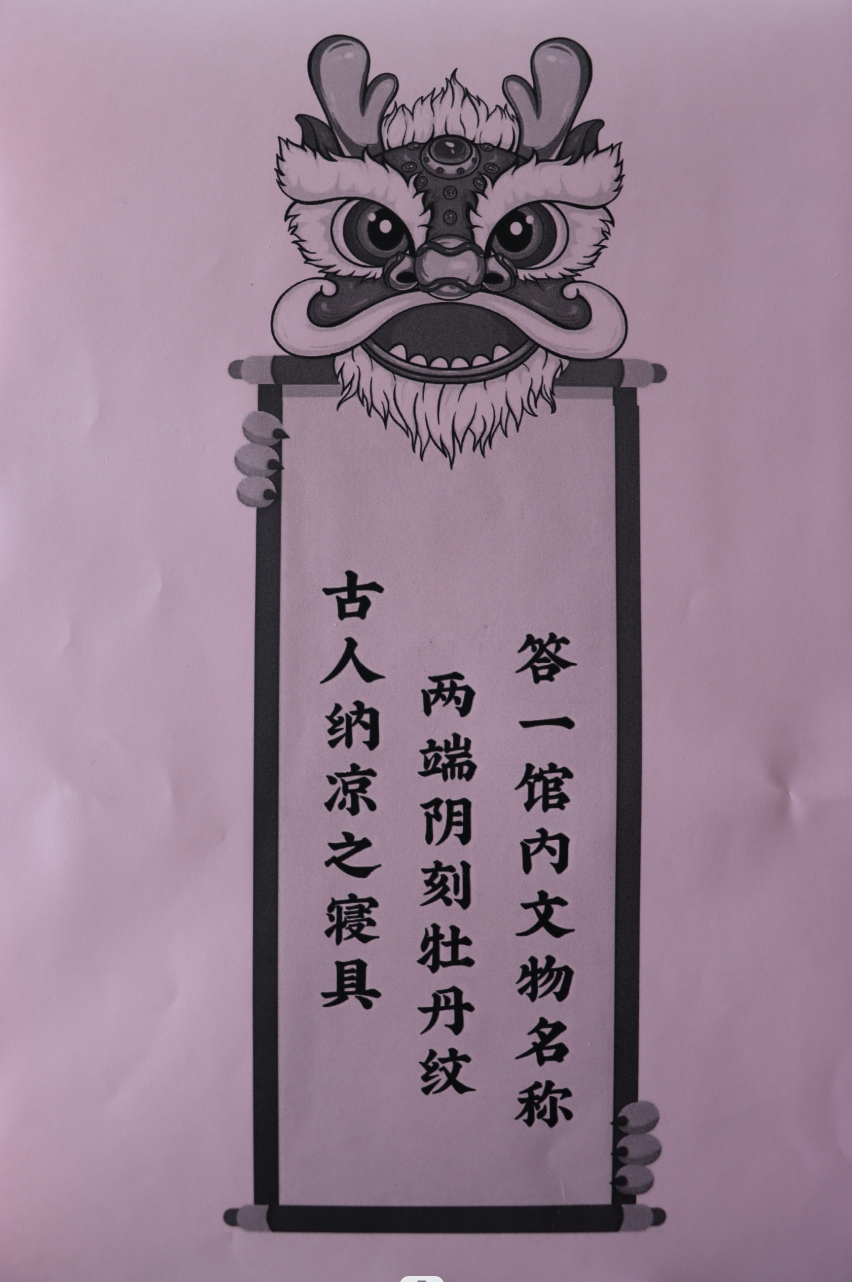 答一馆内文物名称
两端阴刻牡丹纹
古人纳凉之寝具